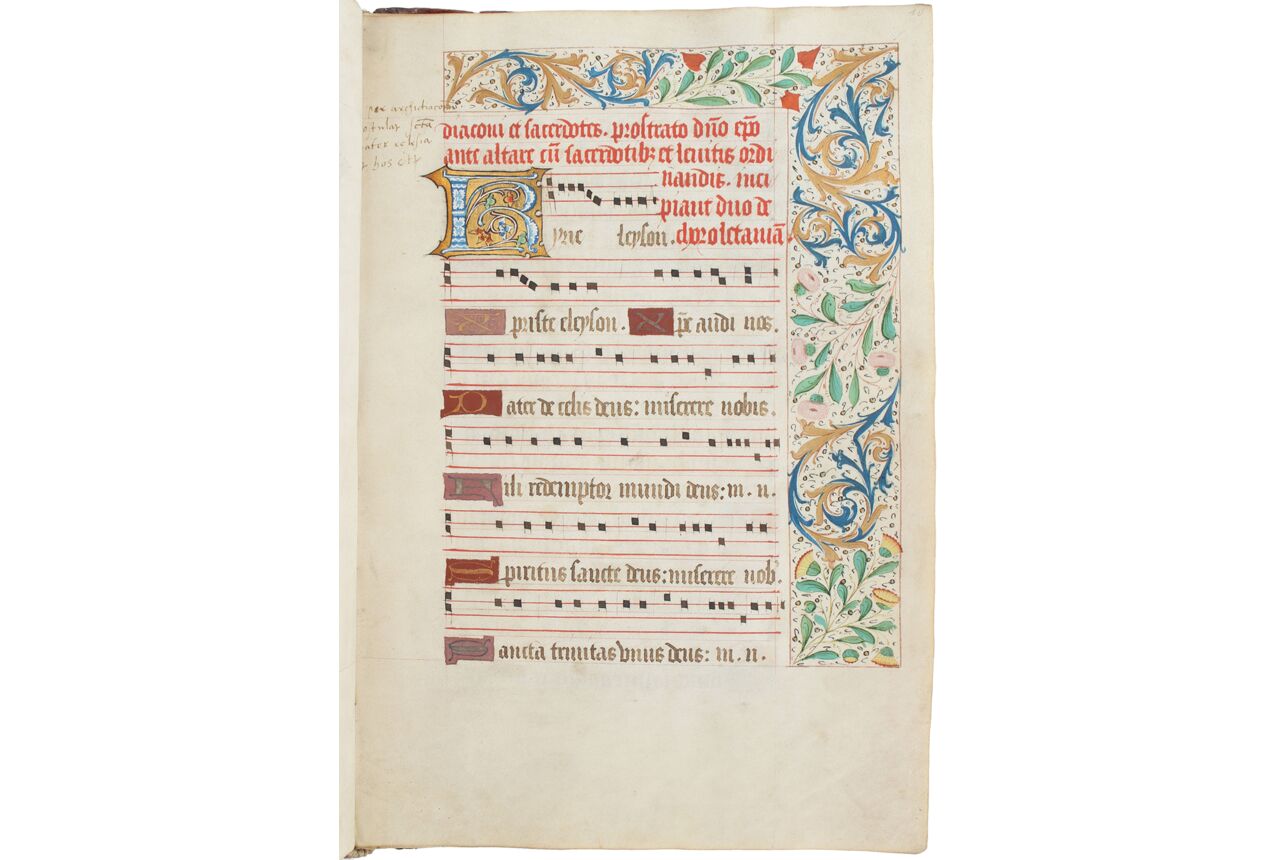 per archidiacon
ater eclesia
diaconi et sacerdotes. prostrato dn̄o ep̄o
ante altare cū sacerdotibꝫ et leuitis ordi
nandis. inci
piant duo de
Kyrie leyson. choro letaniā
Xpriste eleyson. Xp̄e audi nos.
Pater de celis deus: miserere nobis.
Fili redemptor mundi deus: m. n.
Spiritus sancte deus: miserere nob'.
Sancta trinitas vnus deus: m. n.